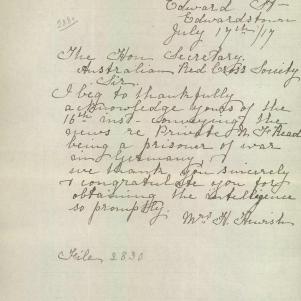 Edward St
Edwardstown
July 17th/17
The Hon Secretary.
Australian Red Cross Society
Sir.
I beg to thankfully
acknowledge yours of the
16th inst. conveying the
news re Private
being a prisoner of war
in Germany
we thank you sincerely
& congratulate you for
obtaining the intelligence
so promptly.
Mrs H.
File 2830